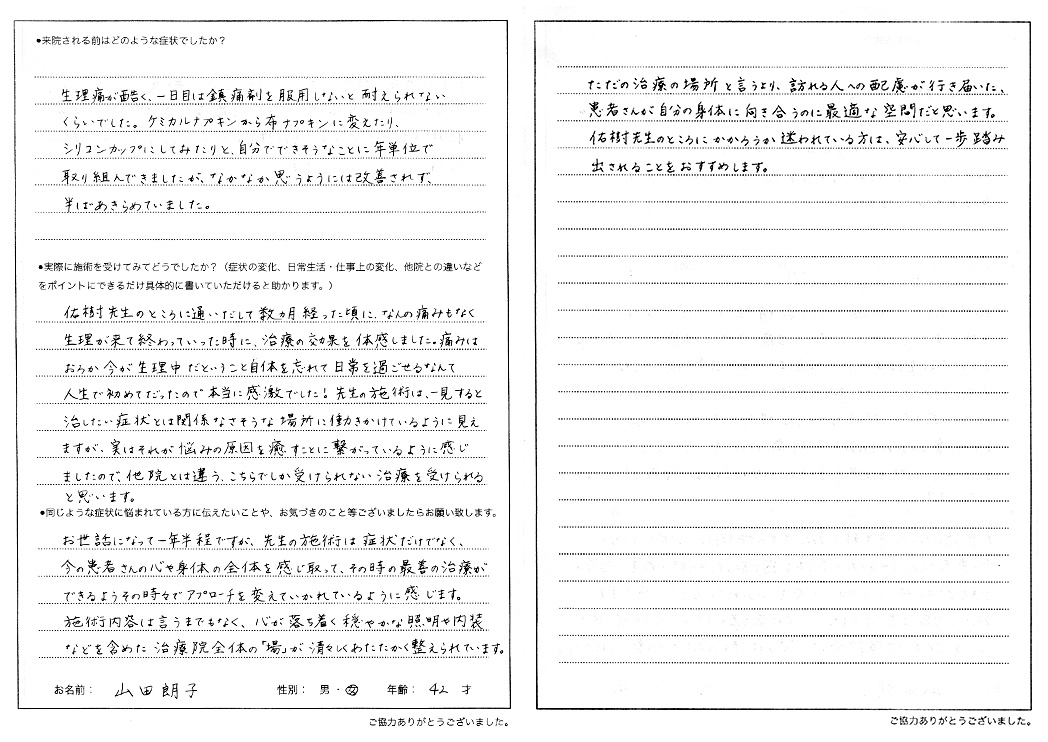 ●来院される前はどのような症状でしたか？
生理痛が酷く、一日目は鎮痛剤を服用しないと耐えられない
くらいでした。ケミカルナプキンから布ナプキンに変えたり、
シリコンカップにしてみたりと、自分でできそうなことに年単位で
取り組んできましたが、なかなか思うようには改善されず、
半ばあきらめていました。
●実際に施術を受けてみてどうでしたか？（症状の変化、日常生活・仕事上の変化、他院との違いなど
をポイントにできるだけ具体的に書いていただけると助かります。）
佑樹先生のところに通いだして数ヵ月経った頃に、なんの痛みもなく
生理が来て終わっていった時に、治療の効果を体感しました。痛みは
おろか今が生理中だということ自体を忘れて日常を過ごせるなんて
人生で初めてだったので本当に感激でした！先生の施術は、一見すると
治したい症状とは関係なさそうな場所に働きかけているように見え
ますが、実はそれが悩みの原因を癒すことに繋がっているように感じ
ましたので、他院とは違う、こちらでしか受けられない治療を受けられる
と思います。
●同じような症状に悩まれている方に伝えたいことや、お気づきのこと等ございましたらお願い致します。
お世話になって一年半程ですが、先生の施術は症状だけでなく、
今の患者さんの心や身体の全体を感じ取って、その時の最善の治療が
できるようその時々でアプローチを変えていかれているように感じます。
施術内容は言うまでもなく、心が落ち着く穏やかな照明や内装
などを含めた治療院全体の「場」が清々しくあたたかく整えられています。
お名前： 山田朗子 性別： 男・女 年齢： 42 才
ご協力ありがとうございました。
ただの治療の場所と言うより、訪れる人への配慮が行き届いた、
患者さんが自分の身体に向き合うのに最適な空間だと思います。
佑樹先生のところにかかろうか迷われている方は、安心して一歩踏み
出されることをおすすめします。
ご協力ありがとうございました。